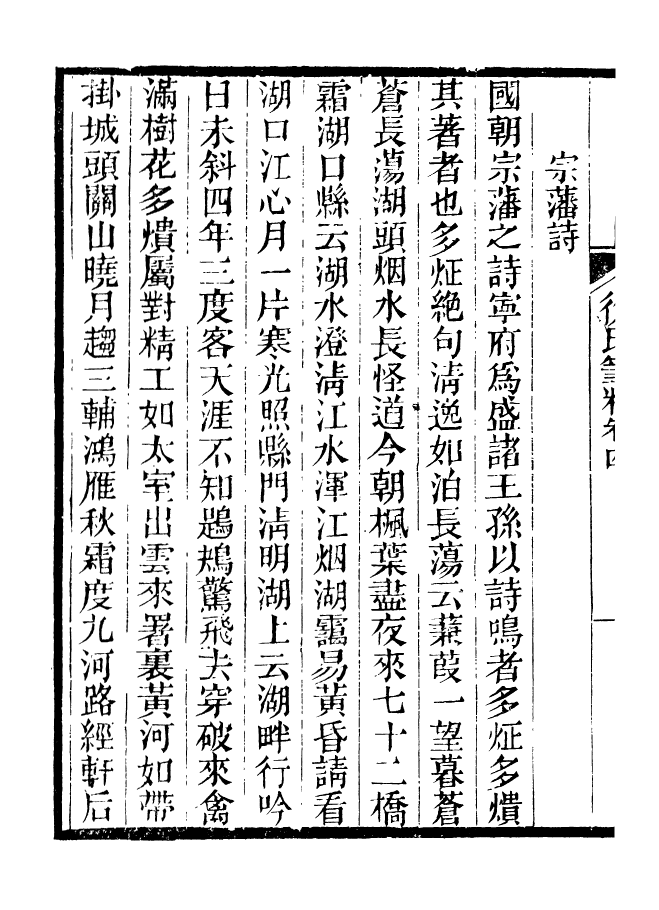 徐氏筆精卷四
宗藩詩
國朝宗藩之詩寧府為盛諸王孫以詩鳴者多炡多熿
其著者也多炡絕句清逸如泊長蕩云蒹葭一望暮蒼
蒼長蕩湖頭烟水長怪道今朝楓葉盡夜來七十二橋
霜湖口縣云湖水澄清江水渾江烟湖靄易黃昏請看
湖口江心月一片寒光照縣門清明湖上云湖畔行吟
日未斜四年三度客天涯不知鶗鴂驚飛去穿破來禽
滿樹花多熿屬對精工如太室出雲來署裏黃河如帶
掛城頭關山曉月趨三輔鴻雁秋霜度九河路經軒后